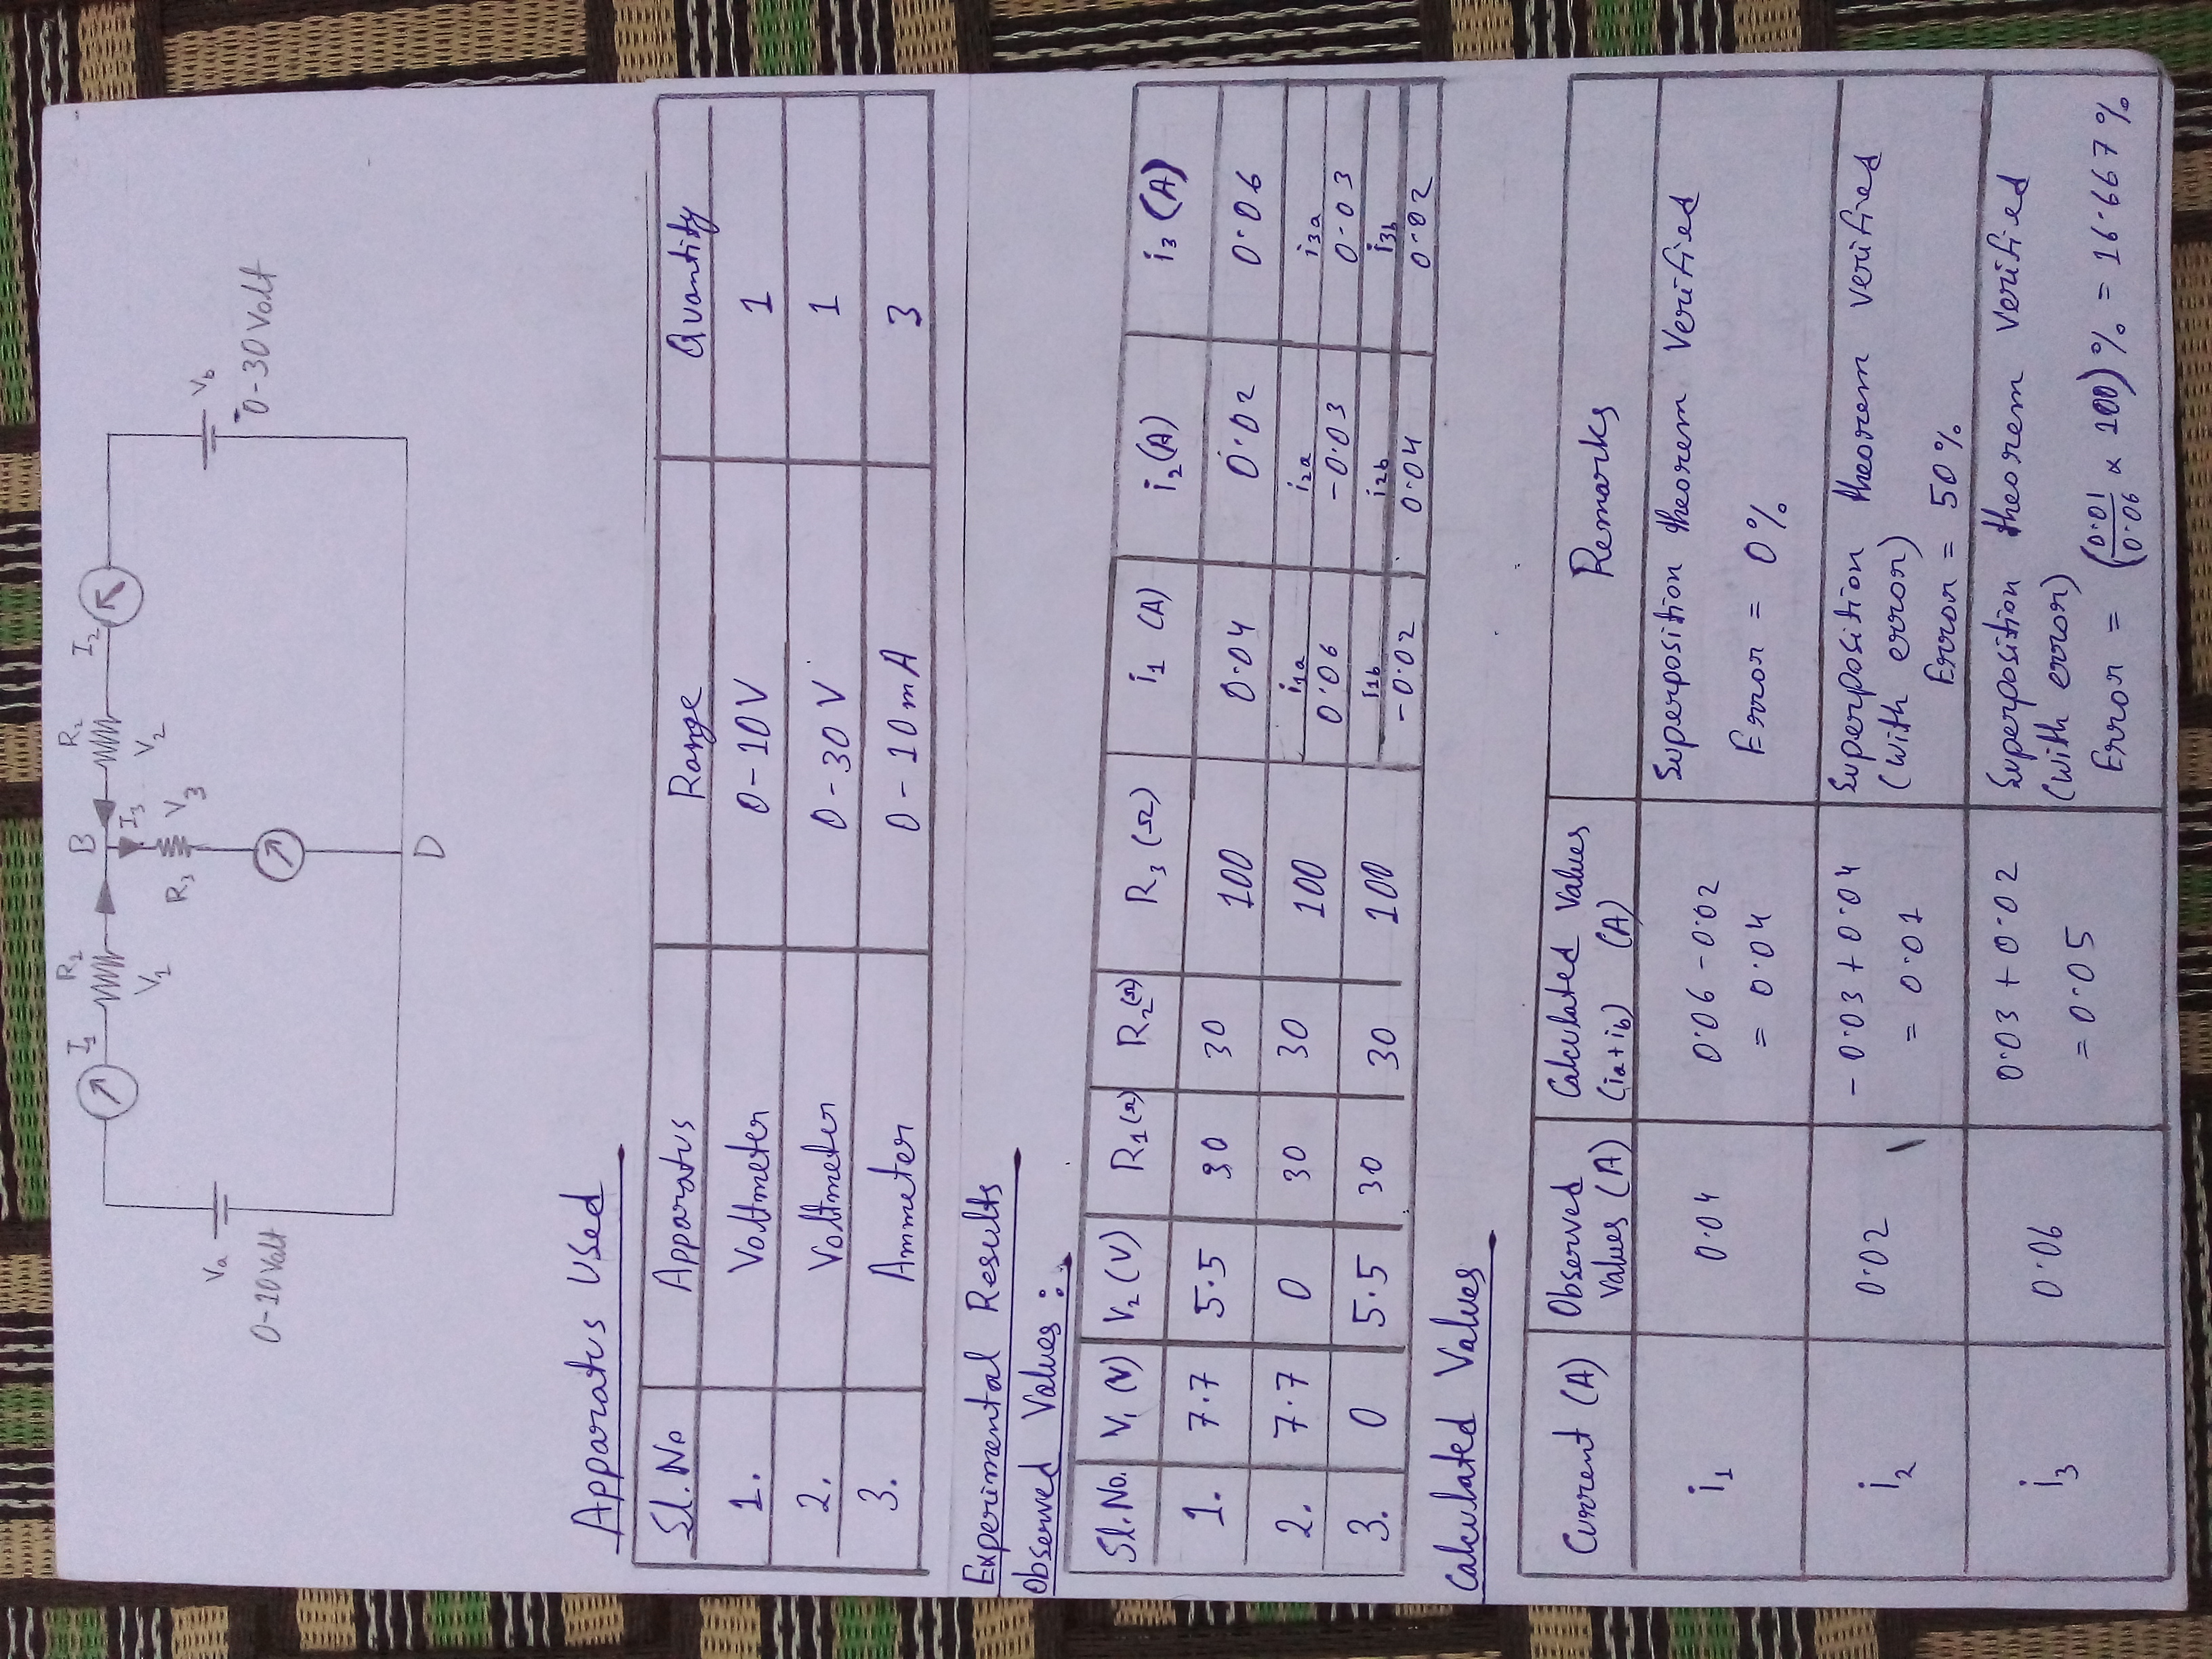 I1 R1 B R2 I2
V1 I3 V2
R3 V3
Va Vb
0-10 Volt 0-30 Volt
D
Apparatus Used
Sl. No Apparatus Range Quantity
1. Voltmeter 0-10V 1
2. Voltmeter 0-30 V 1
3. Ammeter 0-10mA 3
Experimental Results
Observed Values:
Sl. No. V1 (V) V2 (V) R1 (Ω) R2 (Ω) R3 (Ω) i1 (A) i2 (A) i3 (A)
1. 7.7 5.5 30 30 100 0.04 0.02 0.06
2. 7.7 0 30 30 100 i1a 0.06 i2a -0.03 i3a 0.03
3. 0 5.5 30 30 100 i1b -0.02 i2b 0.04 i3b 0.02
Calculated Values
Current (A) Observed Values (A) Calculated Values (ia+ib) (A) Remarks
i1 0.04 0.06 - 0.02 Superposition theorem Verified
= 0.04 Error = 0%
i2 0.02 -0.03 + 0.04 Superposition theorem verified
= 0.01 (with error)
Error = 50%
i3 0.06 0.03 + 0.02 Superposition theorem verified
= 0.05 (with error)
Error = (0.01/0.06 x 100) % = 16.667 %